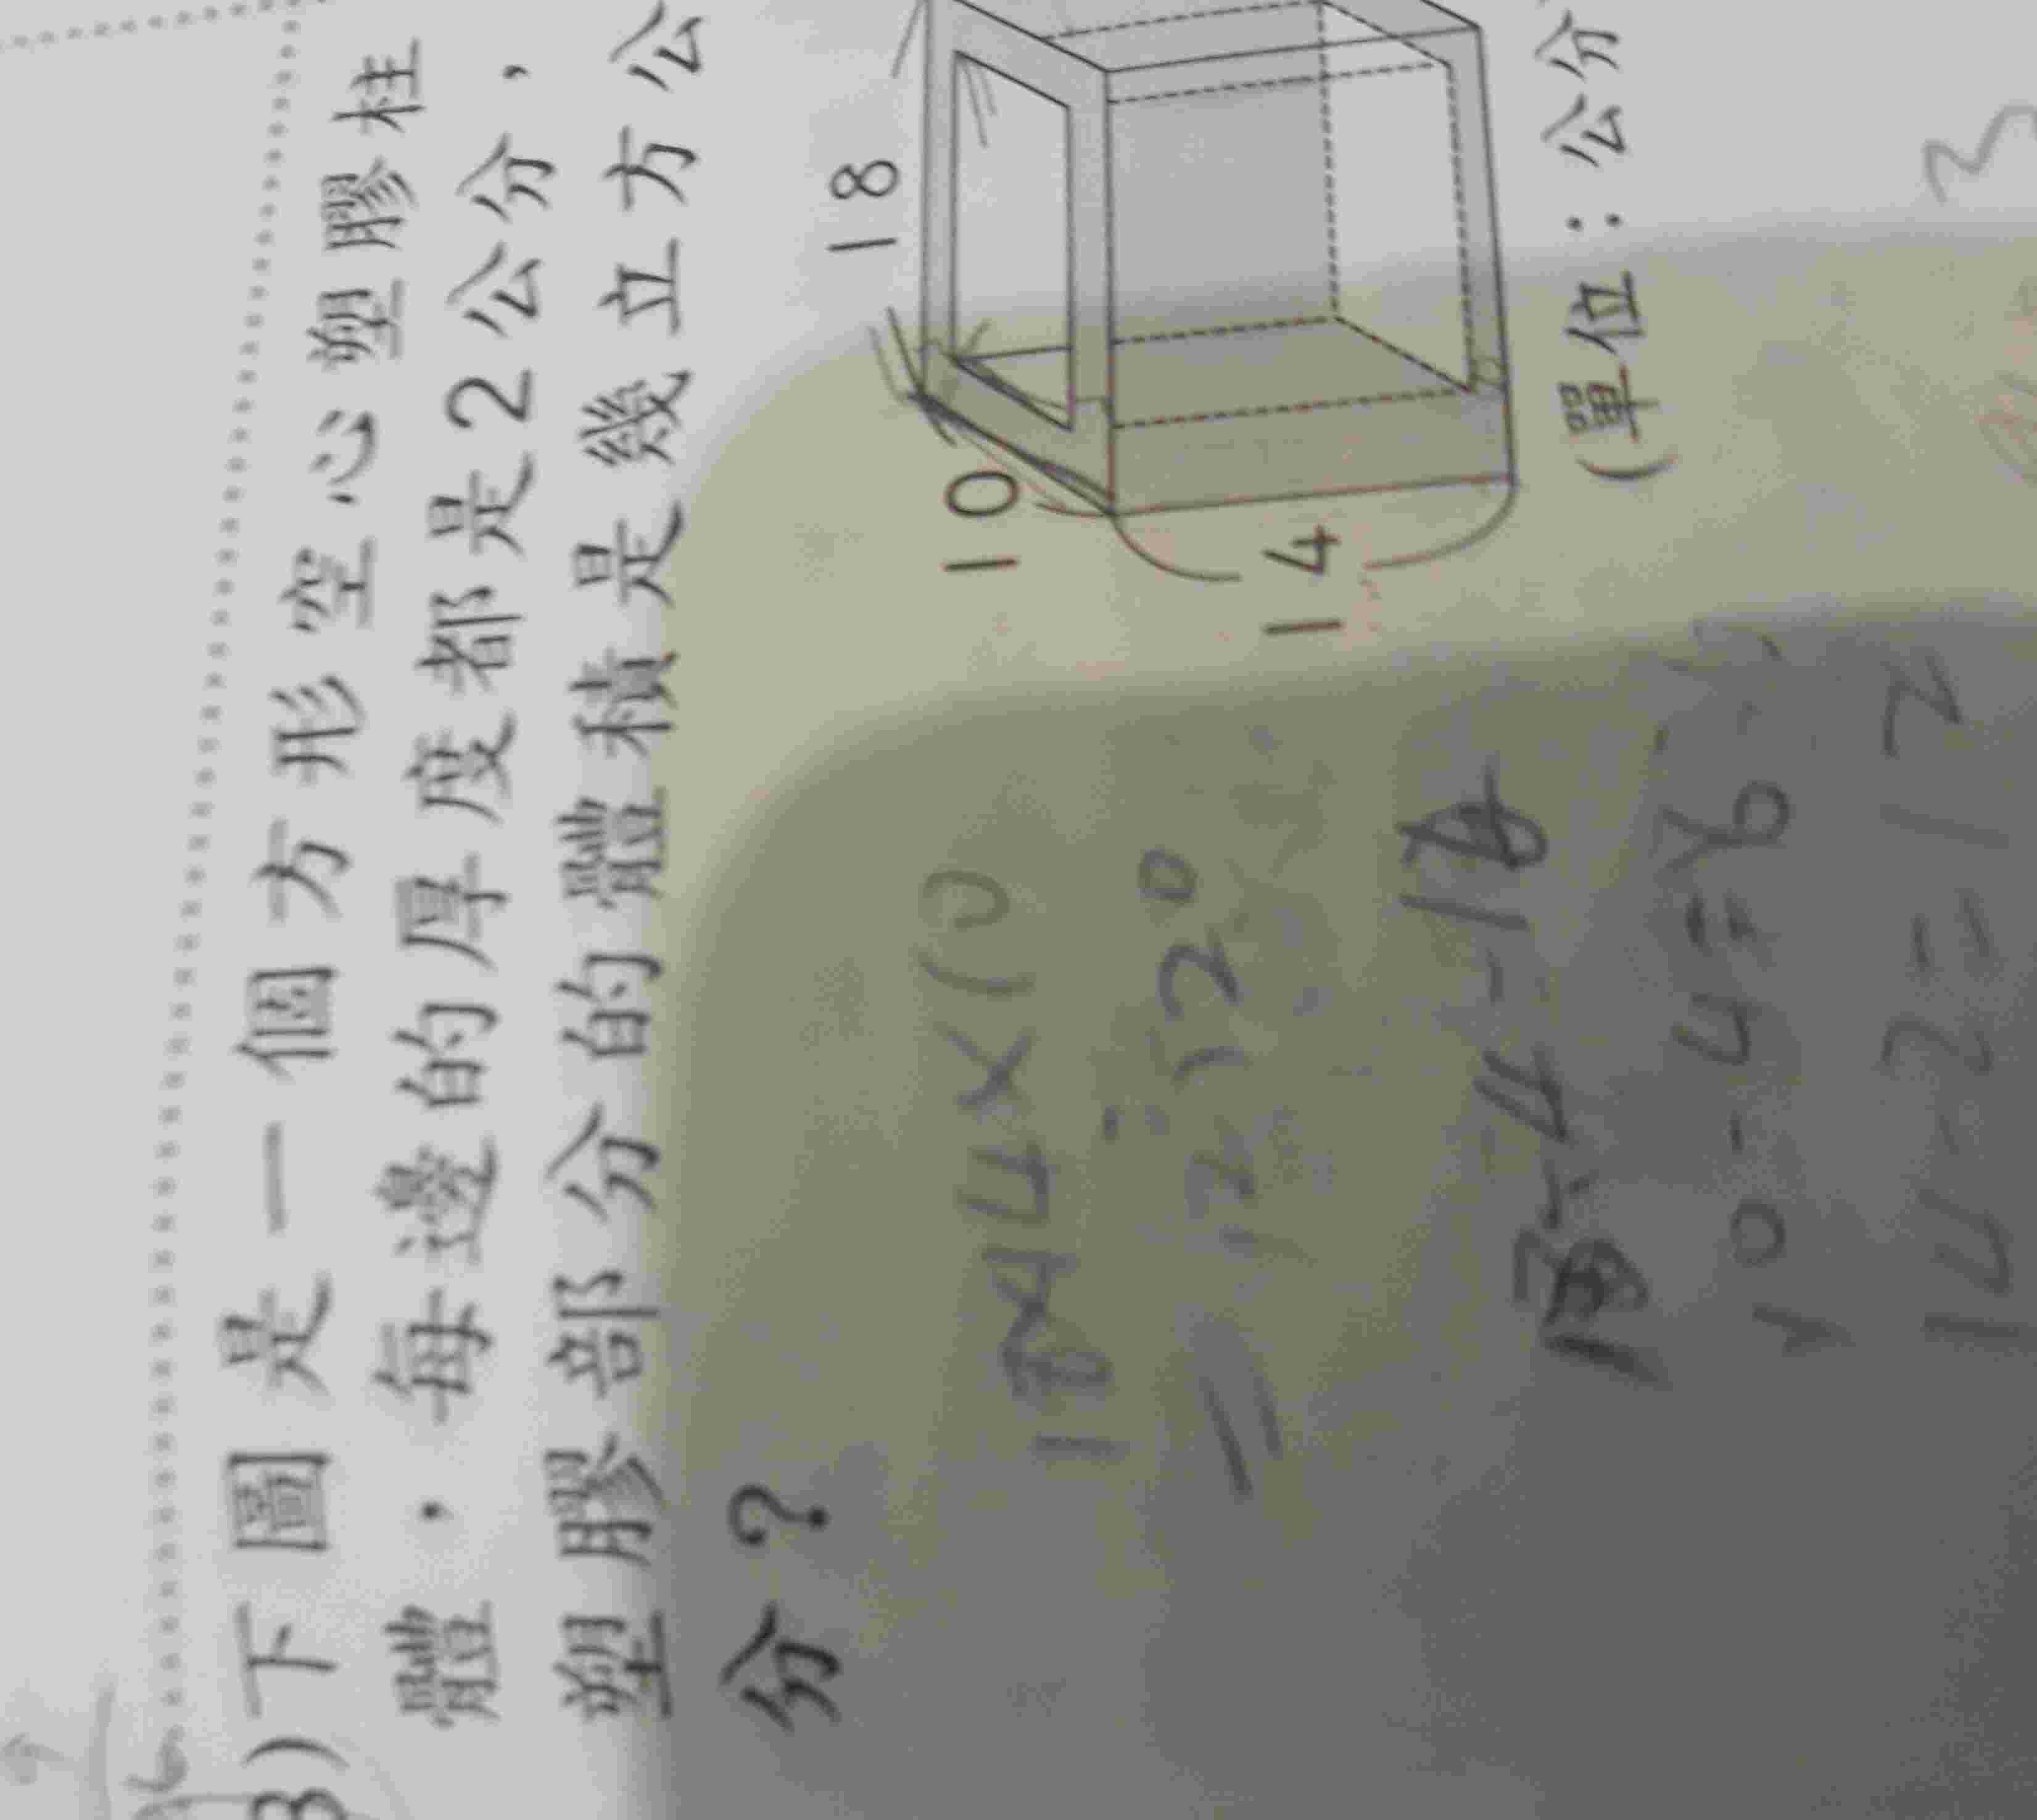 3)下圖是一個方形空心塑膠柱
體，每邊的厚度都是2公分，
塑膠部分的體積是幾立方公
分？
18
10
14
(單位：公分
10-4=6
14-2=12